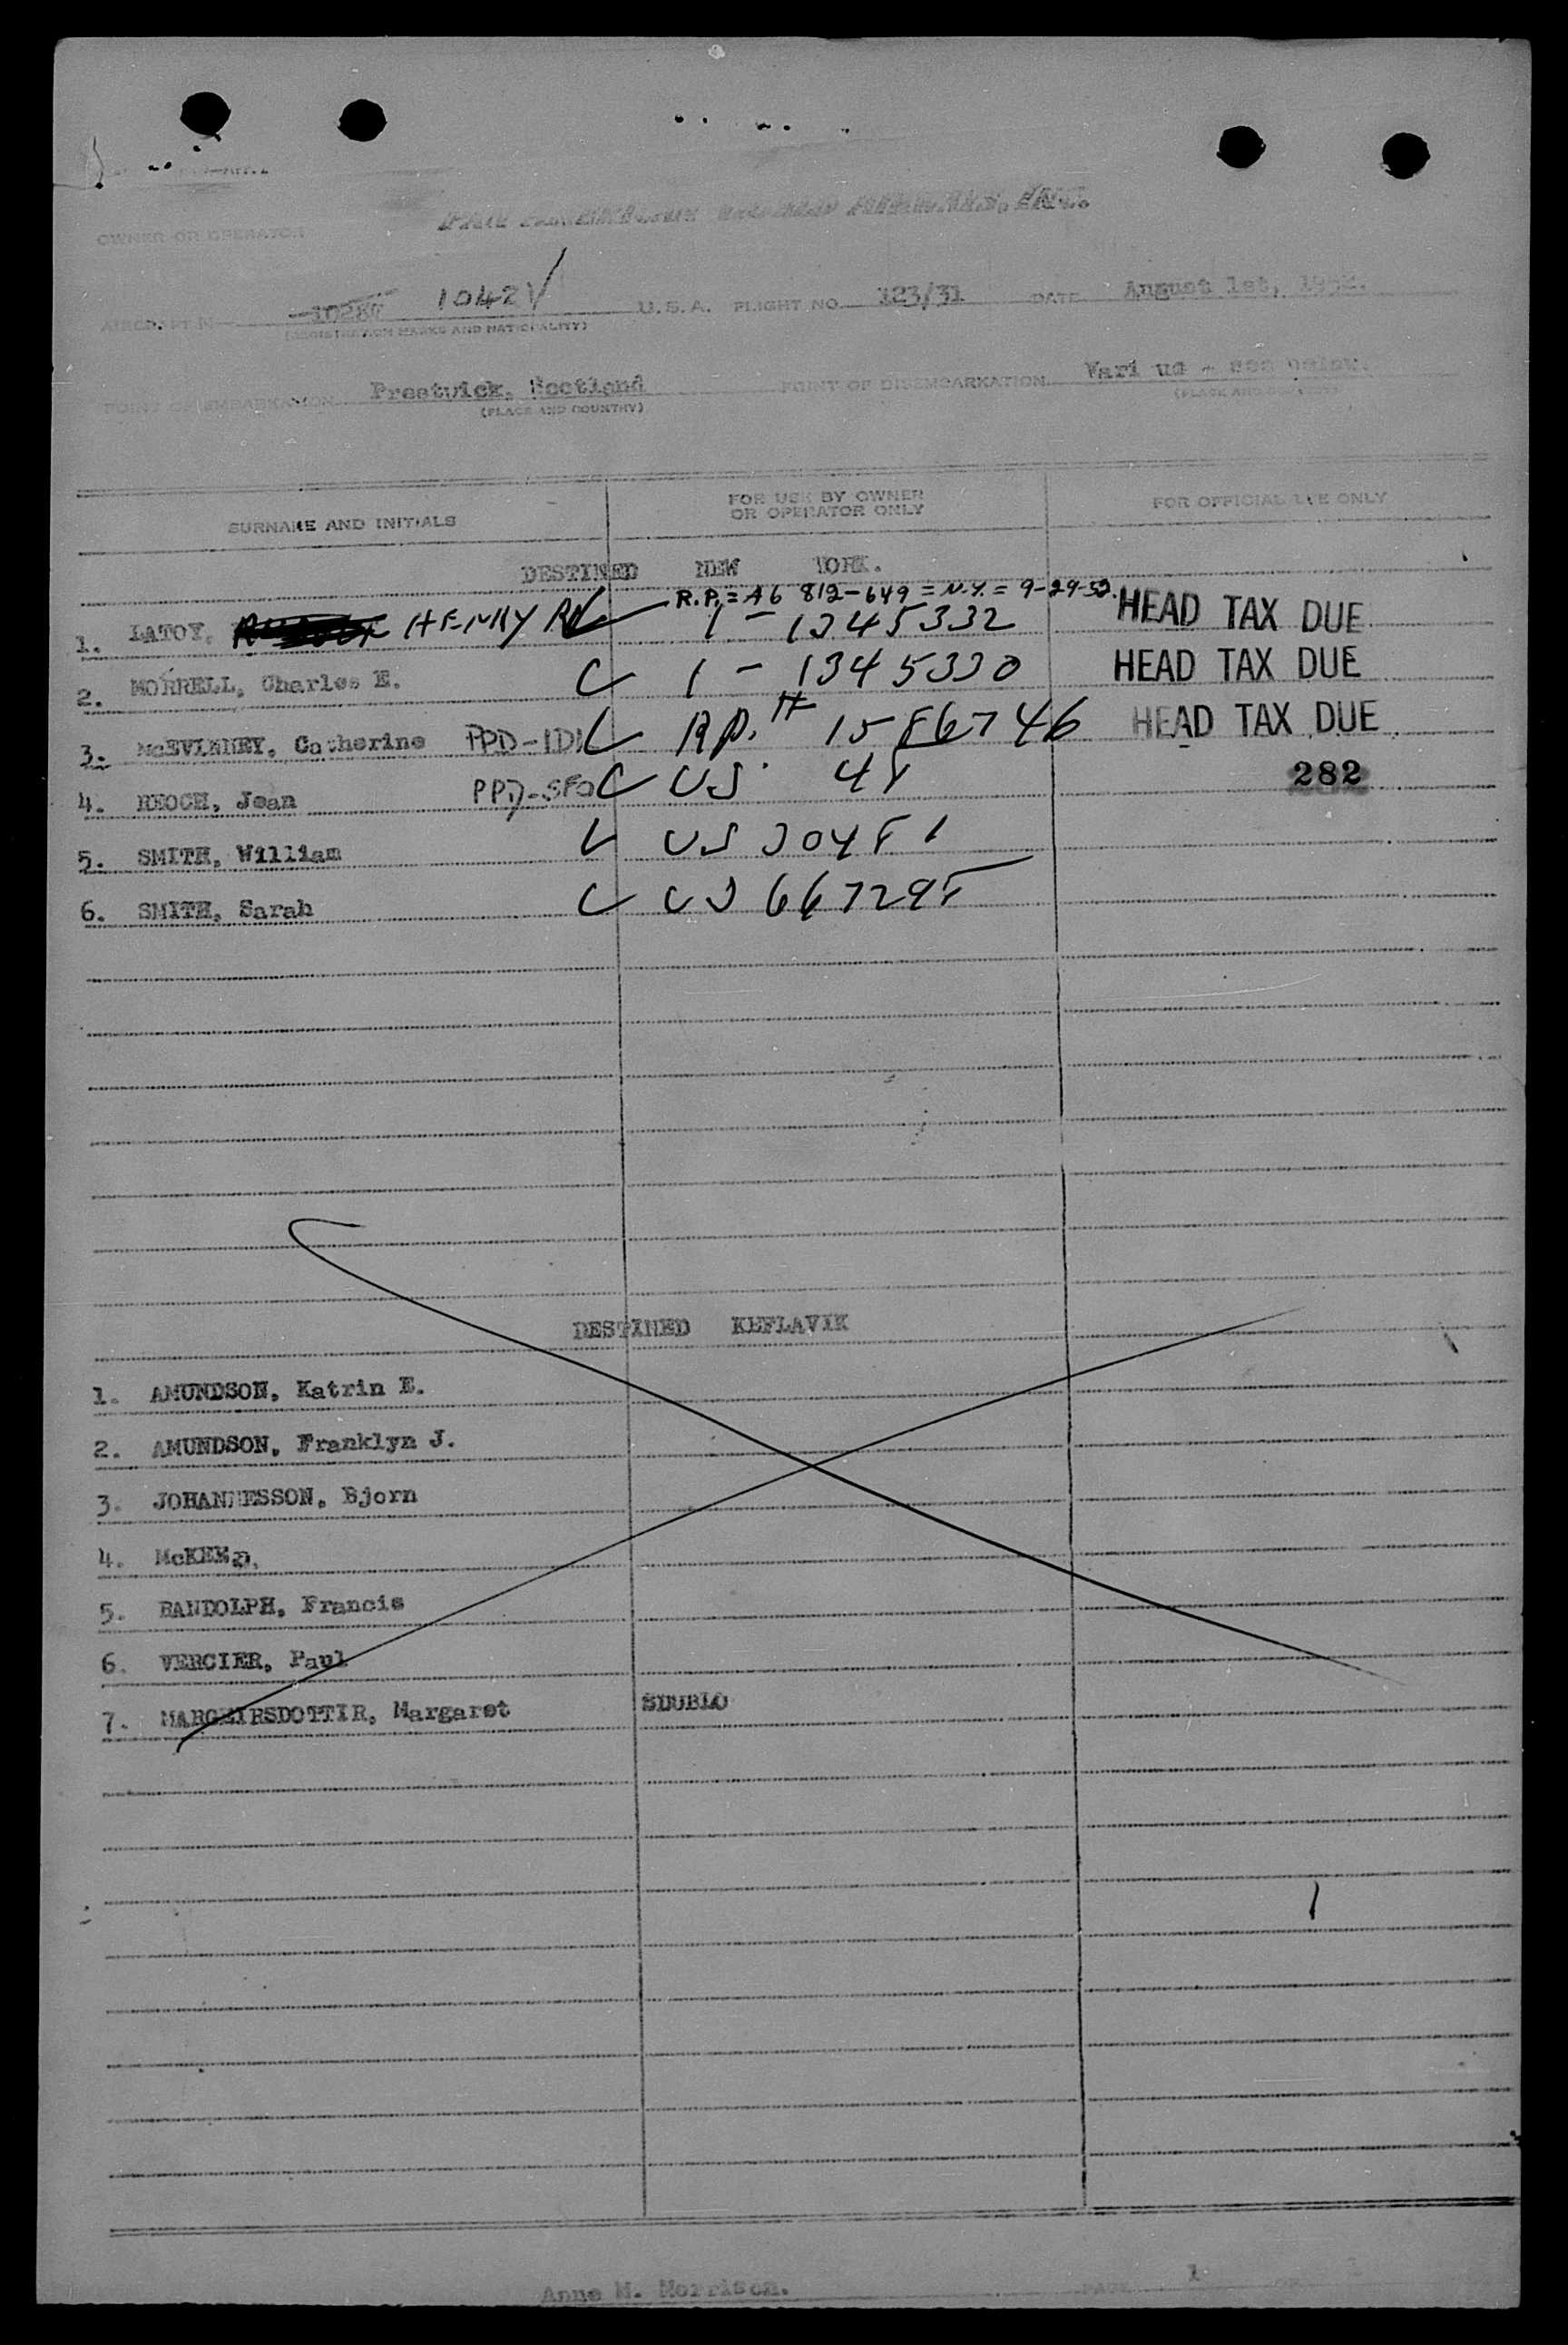 PAN AMERICAN WORLD AIRWAYS, INC.
OWNER OR OPERATOR
AIRCRAFT N 1042V U.S.A. FLIGHT NO. 123/31 DATE August 1st, 1952.
(REGISTRATION MARKS AND NATIONALITY)
POINT OF EMBARKATION Prestwick, Scotland POINT OF DISEMBARKATION Vari us - see below.
(PLACE AND COUNTRY) (PLACE AND
SURNAME AND INITIALS FOR USE BY OWNER OR OPERATOR ONLY FOR OFFICIAL USE ONLY
DESTINED NEW YORK.
R.P. = A6 812-649 = N.Y. = 9-29-52.
1. LATOY, HENRY 1 - 1345332 HEAD TAX DUE
2. MORRELL, Charles E. 1 - 1345330 HEAD TAX DUE
3. Catherine PPD-IDL R.P. # 1586746 HEAD TAX DUE
4. REOCH, Jean PPD-SFO US 48 282
5. SMITH, William US 30481
6. SMITH, Sarah US 667298
DESTINED KEFLAVIK
1. AMUNDSON, Katrin E.
2. AMUNDSON, Franklyn J.
3. JOHANNESSON, Bjorn
4.
5. RANDOLPH, Francis
6. VERCIER, Paul
7. MARGEIRSDOTTIR, Margaret SDUBLO
Anne M. Morrison. PAGE 1